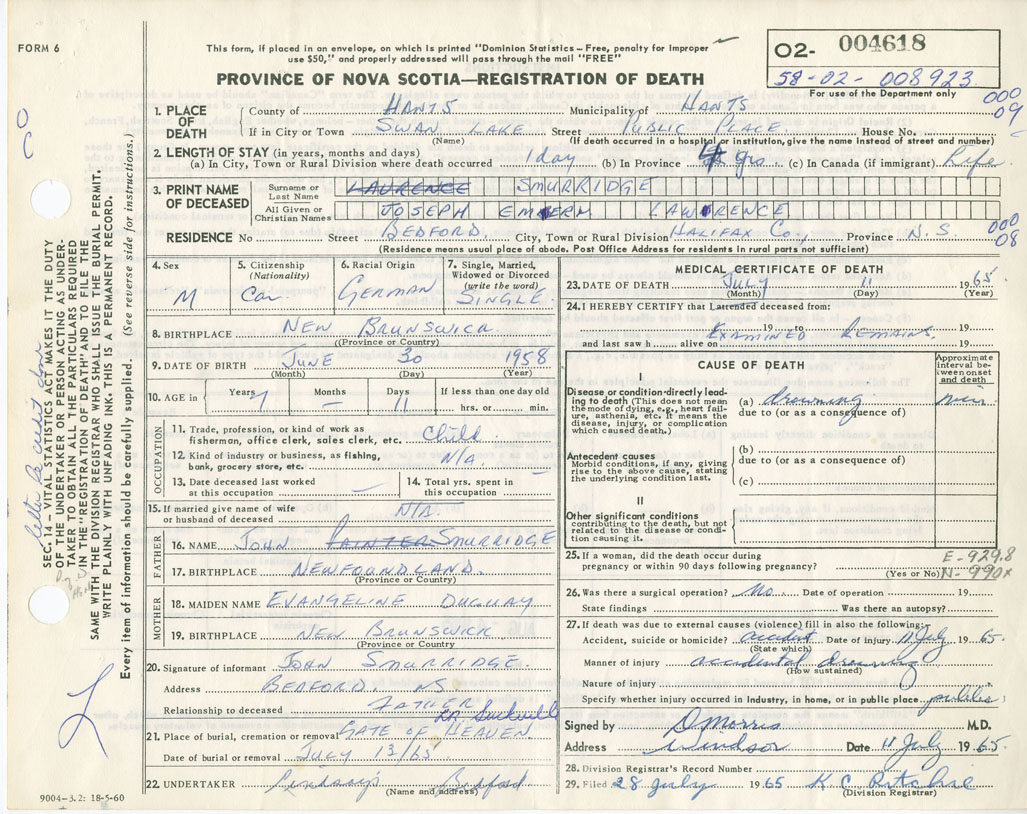 FORM 6
This form, if placed in an envelope, on which is printed "Dominion Statistics – Free, penalty for improper
use $50," and properly addressed will pass through the mail "FREE"
02- 004618
58-02- 008923
For use of the Department only
PROVINCE OF NOVA SCOTIA—REGISTRATION OF DEATH
000
09
1. PLACE OF DEATH County of HANTS Municipality of HANTS
If in City or Town SWAN LAKE Street PUBLIC PLACE House No.
(Name) (If death occurred in a hospital or institution, give the name instead of street and number)
2. LENGTH OF STAY (in years, months and days)
(a) In City, Town or Rural Division where death occurred 1 day (b) In Province 4 yrs (c) In Canada (if immigrant) Life
3. PRINT NAME OF DECEASED Surname or Last Name LAURENCE SMURRIDGE
All Given or Christian Names JOSEPH EMERM LAWRENCE
000
08
RESIDENCE No Street BEDFORD City, Town or Rural Division HALIFAX Co. Province N.S.
(Residence means usual place of abode. Post Office Address for residents in rural parts not sufficient)
4. Sex M
5. Citizenship (Nationality) Can
6. Racial Origin GERMAN
7. Single, Married, Widowed or Divorced (write the word) SINGLE
8. BIRTHPLACE NEW BRUNSWICK
(Province or Country)
9. DATE OF BIRTH JUNE 30 1958
(Month) (Day) (Year)
10. AGE in Years 7 Months – Days 11 If less than one day old
hrs. or min.
OCCUPATION
11. Trade, profession, or kind of work as
fisherman, office clerk, sales clerk, etc. Child
12. Kind of industry or business, as fishing,
bank, grocery store, etc. N/A
13. Date deceased last worked
at this occupation –
14. Total yrs. spent in
this occupation –
15. If married give name of wife
or husband of deceased N/A
FATHER
16. NAME JOHN PAINTER SMURRIDGE
17. BIRTHPLACE NEWFOUNDLAND
(Province or Country)
MOTHER
18. MAIDEN NAME EVANGELINE DUGUAY
19. BIRTHPLACE NEW BRUNSWICK
(Province or Country)
20. Signature of informant JOHN SMURRIDGE
Address BEDFORD, NS
Relationship to deceased FATHER
LR. Sackville
21. Place of burial, cremation or removal GATE OF HEAVEN
Date of burial or removal JULY 13/65
22. UNDERTAKER Bedford
(Name and address)
MEDICAL CERTIFICATE OF DEATH
23. DATE OF DEATH July 11 1965
(Month) (Day) (Year)
24. I HEREBY CERTIFY that I attended deceased from:
19 to 19
EXAMINED REMAINS
and last saw h alive on 19
CAUSE OF DEATH
Approximate interval between onset and death
I
Disease or condition directly leading to death (This does not mean
the mode of dying, e.g., heart failure, asthenia, etc. It means the
disease, injury, or complication
which caused death.)
(a) drowning min
due to (or as a consequence of)
Antecedent causes
Morbid conditions, if any, giving
rise to the above cause, stating
the underlying condition last.
(b)
due to (or as a consequence of)
(c)
II
Other significant conditions
contributing to the death, but not
related to the disease or condition causing it.
25. If a woman, did the death occur during
pregnancy or within 90 days following pregnancy?
(Yes or No)
E-929.8
N-990x
26. Was there a surgical operation? No Date of operation 19
State findings Was there an autopsy?
27. If death was due to external causes (violence) fill in also the following:
Accident, suicide or homicide? accident Date of injury 11 July 1965
(State which)
Manner of injury accidental drowning
(How sustained)
Nature of injury
Specify whether injury occurred in industry, in home, or in public place public
Signed by D Morris M.D.
Address Windsor Date 11 July 1965
28. Division Registrar's Record Number
29. Filed 28 July 1965 K C Ritchie
(Division Registrar)
SEC. 14 – VITAL STATISTICS ACT MAKES IT THE DUTY
OF THE UNDERTAKER OR PERSON ACTING AS UNDER-
TAKER TO OBTAIN ALL THE PARTICULARS REQUIRED
IN THE "REGISTRATION OF DEATH" AND TO FILE THE
SAME WITH THE DIVISION REGISTRAR WHO SHALL ISSUE THE BURIAL PERMIT.
WRITE PLAINLY WITH UNFADING INK. THIS IS A PERMANENT RECORD.
Every item of information should be carefully supplied. (See reverse side for instructions.)
9004–3.2: 18-5-60